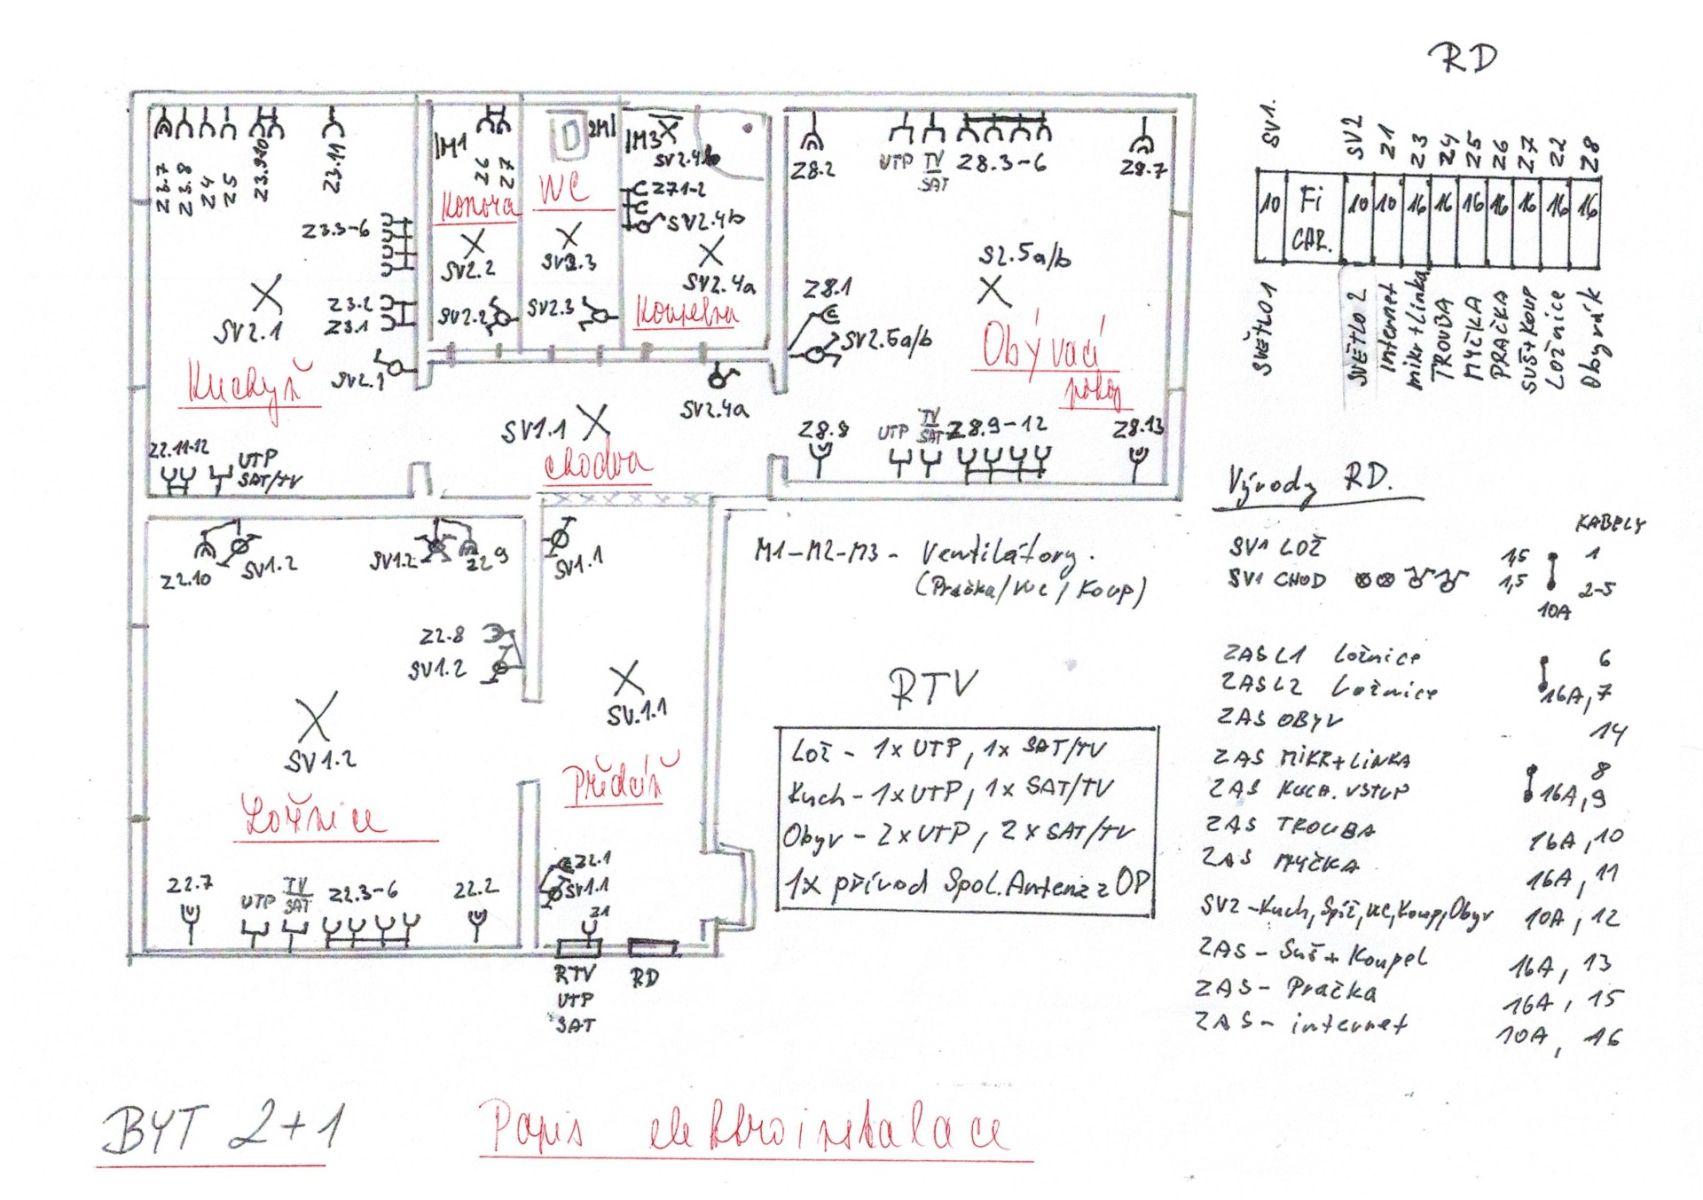 RD
SV1.
SV2
Z1
Z3
Z4
Z5
Z6
Z7
Z2
Z8
10
Fi
CAR.
10
10
16
16
16
16
16
16
16
SVĚTLO 1
SVĚTLO 2
Internet
mikr+Linka
TROUBA
MYČKA
PRAČKA
SUŠ+KOUP
Ložnice
Obyvák
Z3.7
Z3.8
Z4
Z5
Z3.9 10
Z3.11
Z3.3-6
Z3.2
Z3.1
SV2.1
SV2.1
Kuchyň
Z2.11-12
UTP
SAT/TV
M1
Z6
Z7
Komora
SV2.2
SV2.2
2M
WC
SV2.3
SV2.3
M3
SV2.4b
Z7.1-2
SV2.4b
SV2.4a
Koupelna
SV2.4a
SV1.1
chodba
Z8.2
UTP
TV
SAT
Z8.3-6
Z8.7
S2.5a/b
Z8.1
SV2.5a/b
Obývací
pokoj
Z8.8
UTP
TV
SAT
Z8.9-12
Z8.13
Z2.10
SV1.2
SV1.2
Z2.9
SV1.1
Z2.8
SV1.2
SV1.2
Ložnice
SV.1.1
Předsíň
Z2.7
UTP
TV
SAT
Z2.3-6
Z2.2
Z2.1
SV1.1
Z1
RTV
UTP
SAT
RD
M1-M2-M3 - Ventilátory.
(Pračka/WC/Koup)
RTV
Lož - 1x UTP, 1x SAT/TV
Kuch - 1xUTP, 1x SAT/TV
Obyv - 2xUTP, 2x SAT/TV
1x přívod Spol.Antena z OP
Vývody RD.
KABELY
SV1 LOŽ 1,5 1
SV1 CHOD 1,5 2-5
10A
ZAS L1 Ložnice 6
ZAS L2 Ložnice 16A, 7
ZAS OBYV 14
ZAS MIKR+LINKA 8
ZAS KUCH. VSTUP 16A, 9
ZAS TROUBA 16A, 10
ZAS MYČKA 16A, 11
SV2-Kuch, Spíž, WC, Koup, Obyv 10A, 12
ZAS - Suš + Koupel 16A, 13
ZAS - Pračka 16A, 15
ZAS - internet 10A, 16
BYT 2+1
Popis elektroinstalace